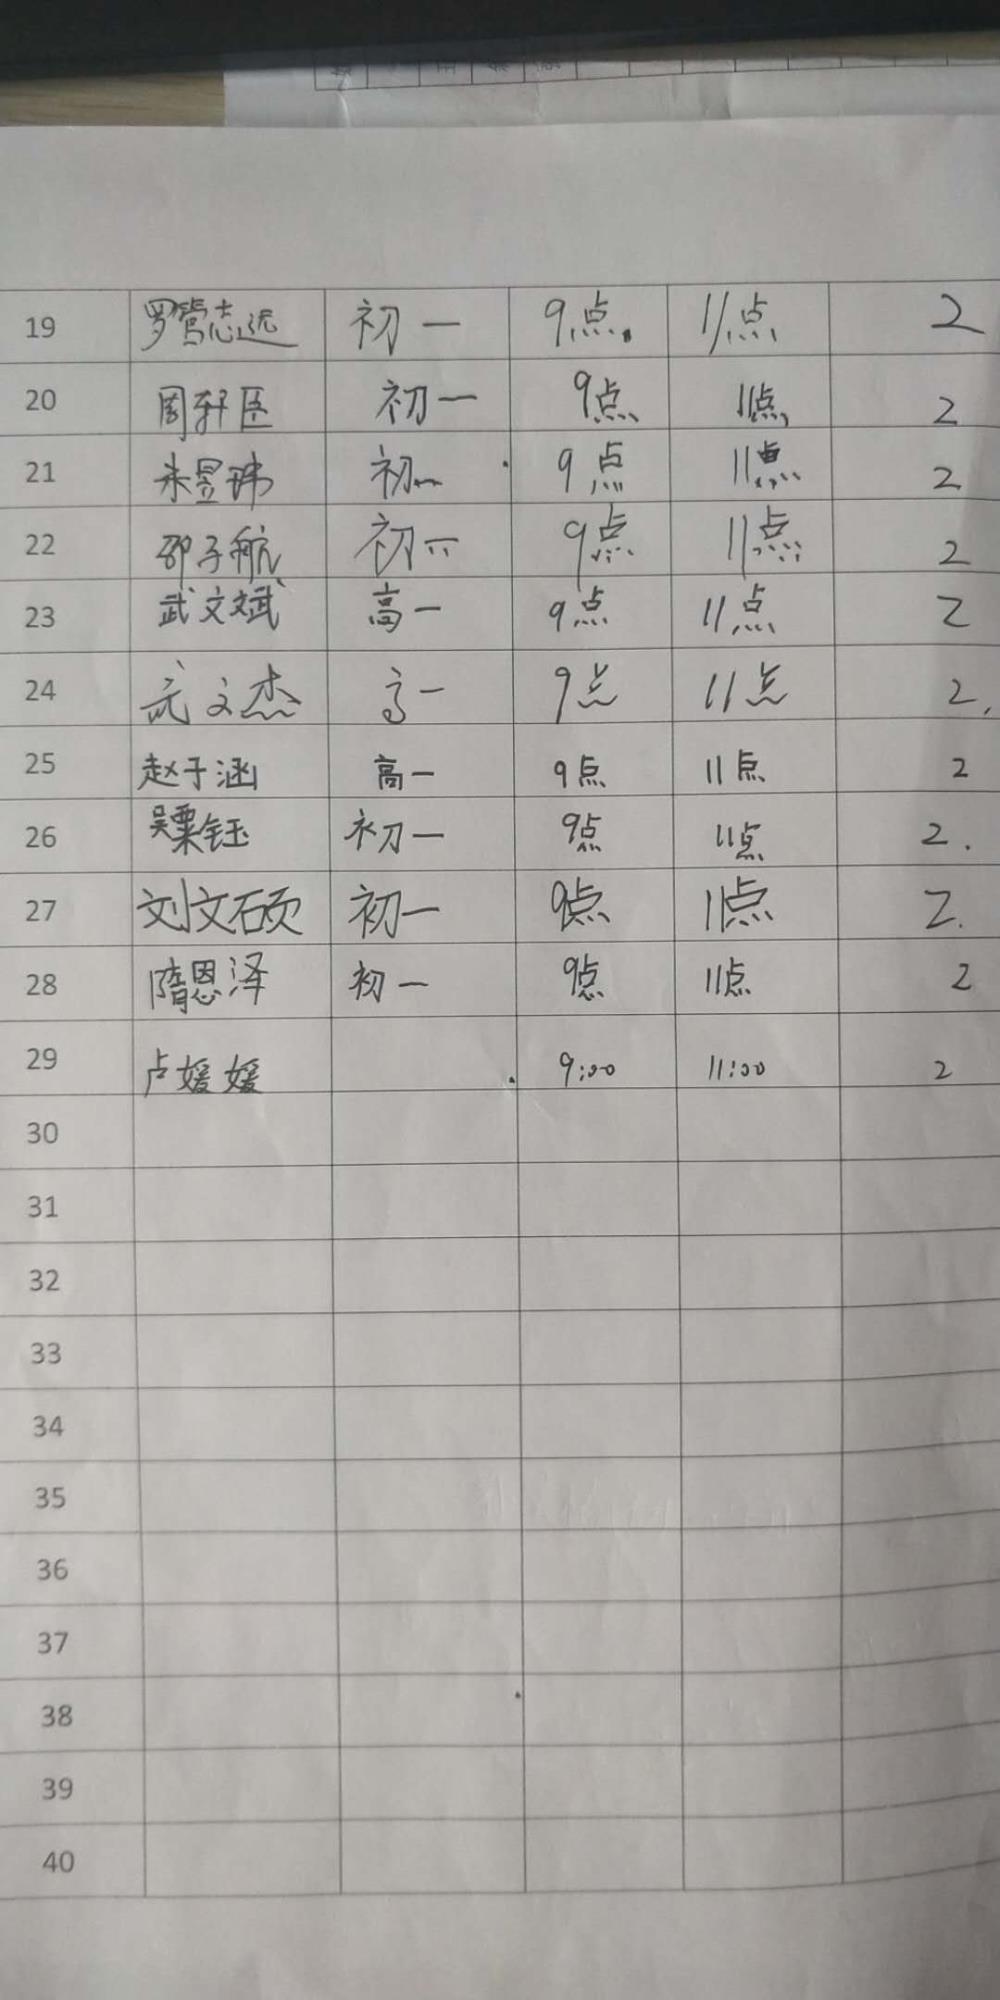 19 罗鸾志远 初一 9点 11点 2
20 周轩臣 初一 9点 11点 2
21 朱昱玮 初一 9点 11点 2
22 邵子航 初二 9点 11点 2
23 武文斌 高一 9点 11点 2
24 武文杰 高一 9点 11点 2
25 赵于涵 高一 9点 11点 2
26 吴粟钰 初一 9点 11点 2.
27 刘文硕 初一 9点 11点 2.
28 隋恩泽 初一 9点 11点 2
29 卢媛媛 9:00 11:00 2
30
31
32
33
34
35
36
37
38
39
40